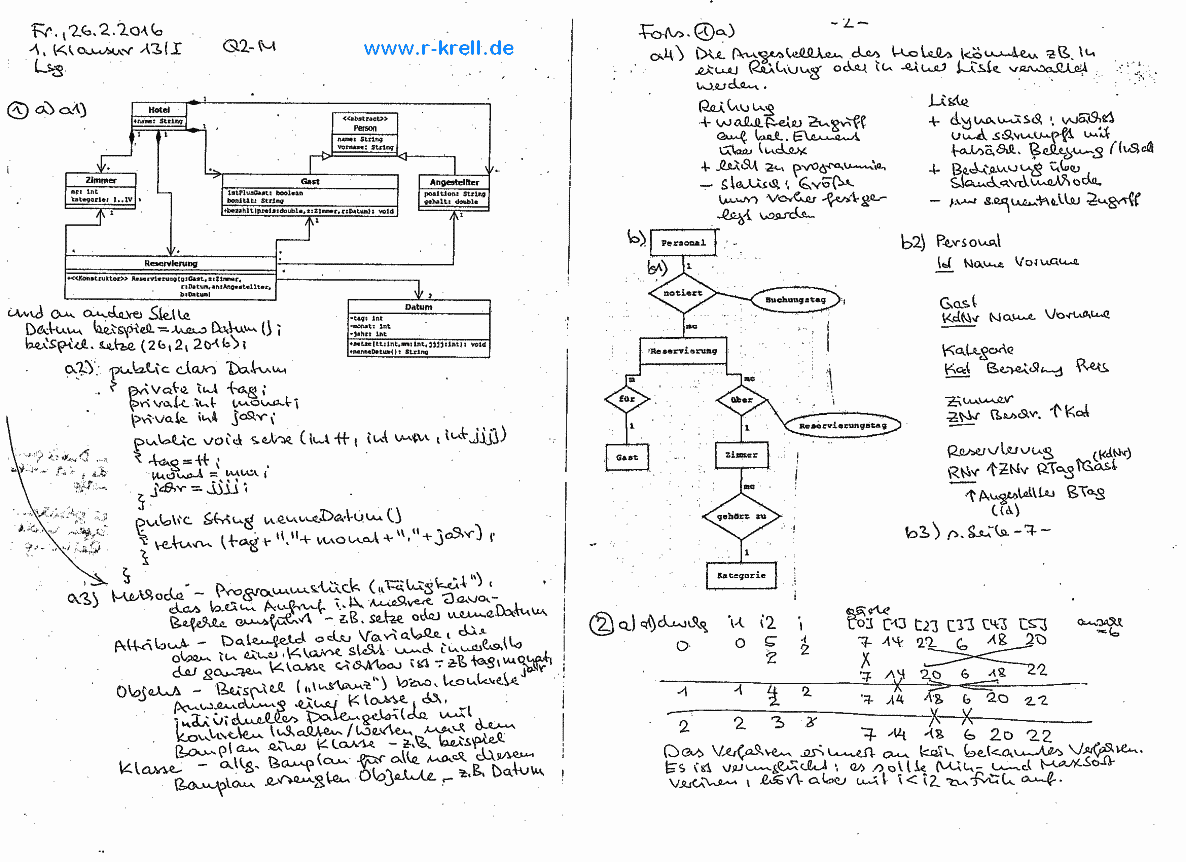 Fr., 26.2.2016
1. Klausur 13/I Q2-M
Lsg.
www.r-krell.de
① a) a1)
Hotel
+name: String
<<abstract>>
Person
name: String
vorname: String
Zimmer
nr: int
kategorie: I..IV
Gast
istPlusGast: boolean
bonität: String
+bezahlt(preis:double,z:Zimmer,r:Datum): void
Angestellter
position: String
gehalt: double
Reservierung
+<<Konstruktor>> Reservierung(g:Gast,z:Zimmer,
r:Datum,an:Angestellter,
b:Datum)
Datum
-tag: int
-monat: int
-jahr: int
+setze(tt:int,mm:int,jjjj:int): void
+nenneDatum(): String
und an anderer Stelle
Datum beispiel = new Datum();
beispiel.setze (26,2,2016);
a2) public class Datum
{ private int tag;
private int monat;
private int jahr;
public void setze (int tt, int mm, int jjjj)
{ tag = tt;
monat = mm;
jahr = jjjj;
}
public String nenneDatum ()
{ return (tag + "." + monat + "." + jahr);
}
}
a3) Methode - Programmstück („Fähigkeit"),
das beim Aufruf i.A. mehrere Java-
Befehle ausführt - z.B. setze oder nenneDatum
Attribut - Datenfeld oder Variable, die
oben in einer Klasse steht und innerhalb
der ganzen Klasse sichtbar ist - zB tag, monat, jahr
Objekt - Beispiel („Instanz") bzw. konkrete
Anwendung einer Klasse, d.
individuelles Datengebilde mit
konkreten Inhalten/Werten nach dem
Bauplan einer Klasse - z.B. beispiel
Klasse - allg. Bauplan für alle nach diesem
Bauplan erzeugten Objekte - z.B. Datum
-2-
Forts. ① a)
a4) Die Angestellten des Hotels könnten zB. in
einer Reihung oder in einer Liste verwaltet
werden.
Reihung
+ wahlfreier Zugriff
auf bel. Element
über Index
+ leicht zu programmie
- statisch: Größe
muss vorher festge-
legt werden
Liste
+ dynamisch: wächst
und schrumpft mit
tatsächl. Belegung / Inhalt
+ Bedienung über
Standardmethode
- nur sequentieller Zugriff
b)
b1)
Personal
1
notiert
Buchungstag
mc
Reservierung
m
mc
für
über
Reservierungstag
1
1
Gast
Zimmer
mc
gehört zu
1
Kategorie
b2) Personal
Id Name Vorname
Gast
KdNr Name Vorname
Kategorie
Kat Bezeichng Preis
Zimmer
ZNr Beschr. ↑Kat
Reservierung
RNr ↑ZNr RTag ↑Gast (KdNr)
↑Angestellter BTag
(Id)
b3) s. Seite -7-
② a) a1) durchg i1 i2 i [0] [1] [2] [3] [4] [5]
0 0 5 1 7 14 22 6 18 20
2 2
7 14 20 6 18 22
1 1 4 2 7 14 18 6 20 22
2
2 2 3
7 14 18 6 20 22
Das Verfahren erinnert an kein bekanntes Verfahren.
Es ist verunglückt: es sollte Min- und MaxSort
vereinen, hört aber mit i<i2 zu früh auf.